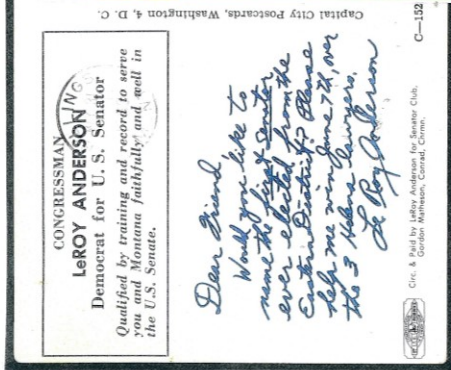 Capital City Postcards, Washington 4, D. C.
CONGRESSMAN
LeROY ANDERSON
Democrat for U. S. Senator
Qualified by training and record to serve
you and Montana faithfully and well in
the U.S. Senate.
Dear Friend,
Would you like to
name the first Senator
ever elected from the
Eastern District? Please
help me win June 7th, over
the 3 Helena lawyers.
Le Roy Anderson
Circ. & Paid by LeRoy Anderson for Senator Club,
Gordon Matheson, Conrad, Chrmn.
C—152